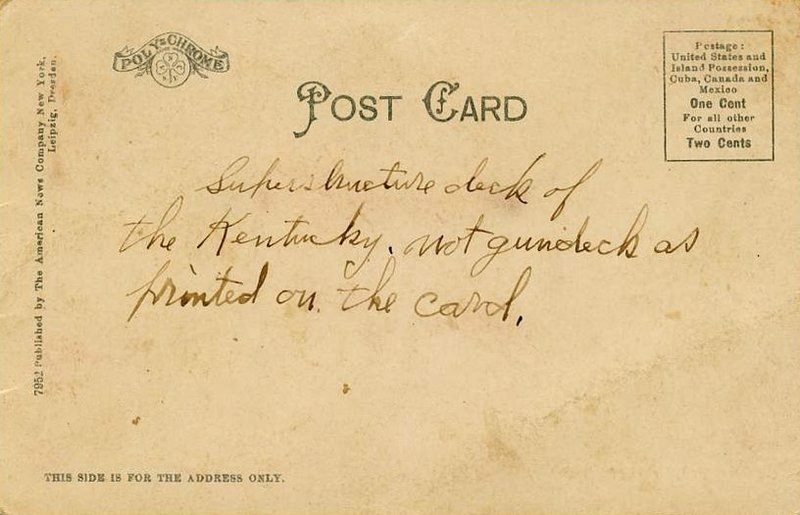 POLY-CHROME
POST CARD
Postage:
United States and
Island Possession,
Cuba, Canada and
Mexico
One Cent
For all other
Countries
Two Cents
Superstructure deck of
the Kentucky. not gundeck as
printed on the card.
7952 Published by The American News Company New York,
Leipzig, Dresden.
THIS SIDE IS FOR THE ADDRESS ONLY.